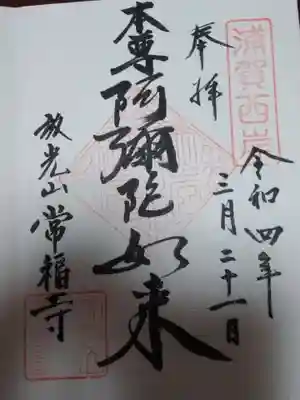 浦賀西岸
奉拝
令和四年
三月二十一日
本尊阿彌陀如来
放光山常福寺